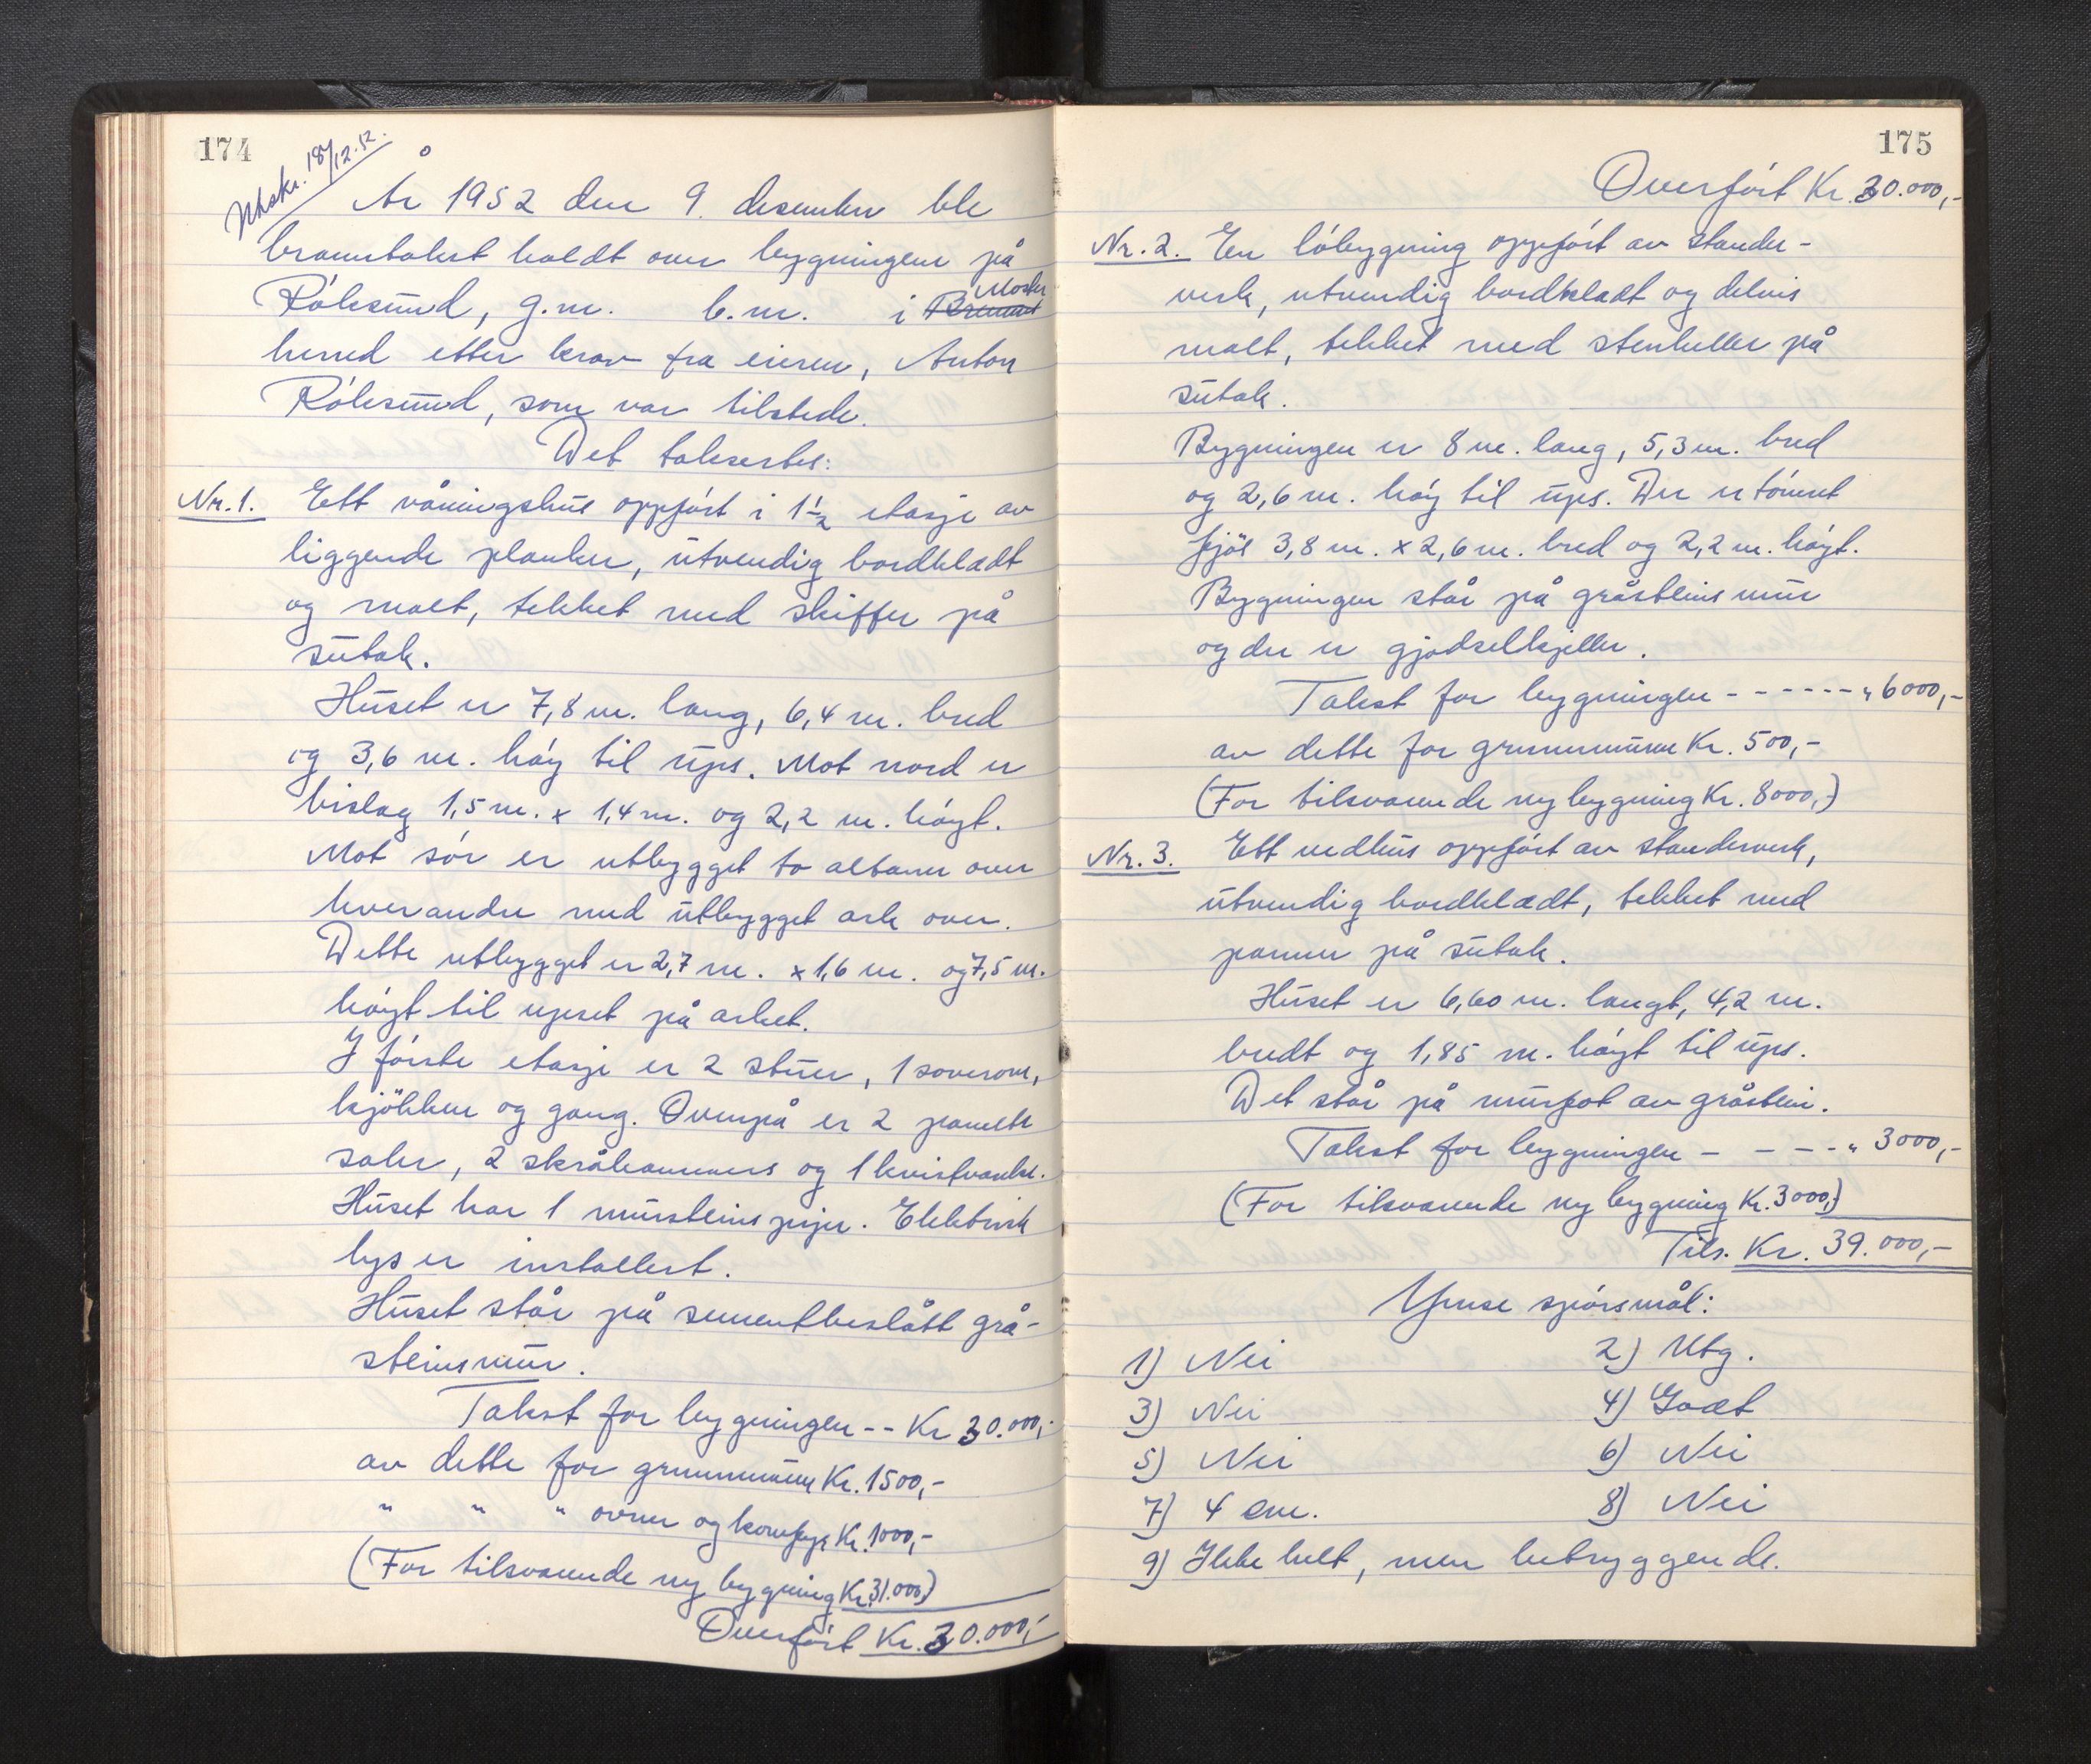 174
Utskr. 18/12.52.
År 1952 den 9. desember ble
branntakst holdt over bygningene på
Röksund, g.m. b.m. i Bremnes Moster
herred etter krav fra eieren, Anton
Röksund, som var tilstede.
Det taksertes:
Nr. 1. Ett våningshus oppfört i 1½ etasje av
liggende planker, utvendig bordkledt
og malt, tekket med skiffer på
sutak.
Huset er 7,8 m. lang, 6,4 m. bred
og 3,6 m. höy til ups. Mot nord er
bislag 1,5 m. x 1,4 m. og 2,2 m. höyt.
Mot sör er utbygget to altaner over
hverandre med utbygget ark over.
Dette utbygget er 2,7 m. x 1,6 m. og 7,5 m.
höyt til upset på arket.
I förste etasje er 2 stuer, 1 soverom,
kjökken og gang. Ovenpå er 2 panelte
saler, 2 skråkammers og 1 kvistværelse.
Huset har 1 mursteinspipe. Elektrisk
lys er installert.
Huset står på sementbeslått grå-
steinsmur.
Takst for bygningen -- Kr 30.000,-
av dette for grunnmuren Kr. 1500,-
" " " ovner og komfyr Kr. 1000,-
(For tilsvarende ny bygning Kr. 31.000,-)
Overfört Kr. 30.000,-
175
Overfört Kr. 30.000,-
Nr. 2. En löbygning oppfört av stender-
verk, utvendig bordkledt og delvis
malt, tekket med stenheller på
sutak.
Bygningen er 8 m. lang, 5,3 m. bred
og 2,6 m. höy til ups. Der er tömret
fjös 3,8 m. x 2,6 m. bred og 2,2 m. höyt.
Bygningen står på gråsteinsmur
og der er gjödselkjeller.
Takst for bygningen - - - - - - " 6000,-
av dette for grunnmuren Kr. 500,-
(For tilsvarende ny bygning Kr. 8000,-)
Nr. 3. Ett vedhus oppfört av stenderverk,
utvendig bordkledt, tekket med
panner på sutak.
Huset er 6,60 m. langt, 4,2 m.
bredt og 1,85 m. höyt til ups.
Det står på murfot av gråstein.
Takst for bygningen - - - - " 3000,-
(For tilsvarende ny bygning Kr. 3000,-)
Tils. Kr. 39.000,-
Ymse spörsmål:
1) Nei 2) Utg.
3) Nei 4) Godt
5) Nei 6) Nei
7) 4 cm. 8) Nei
9) Ikke helt, men betryggende.